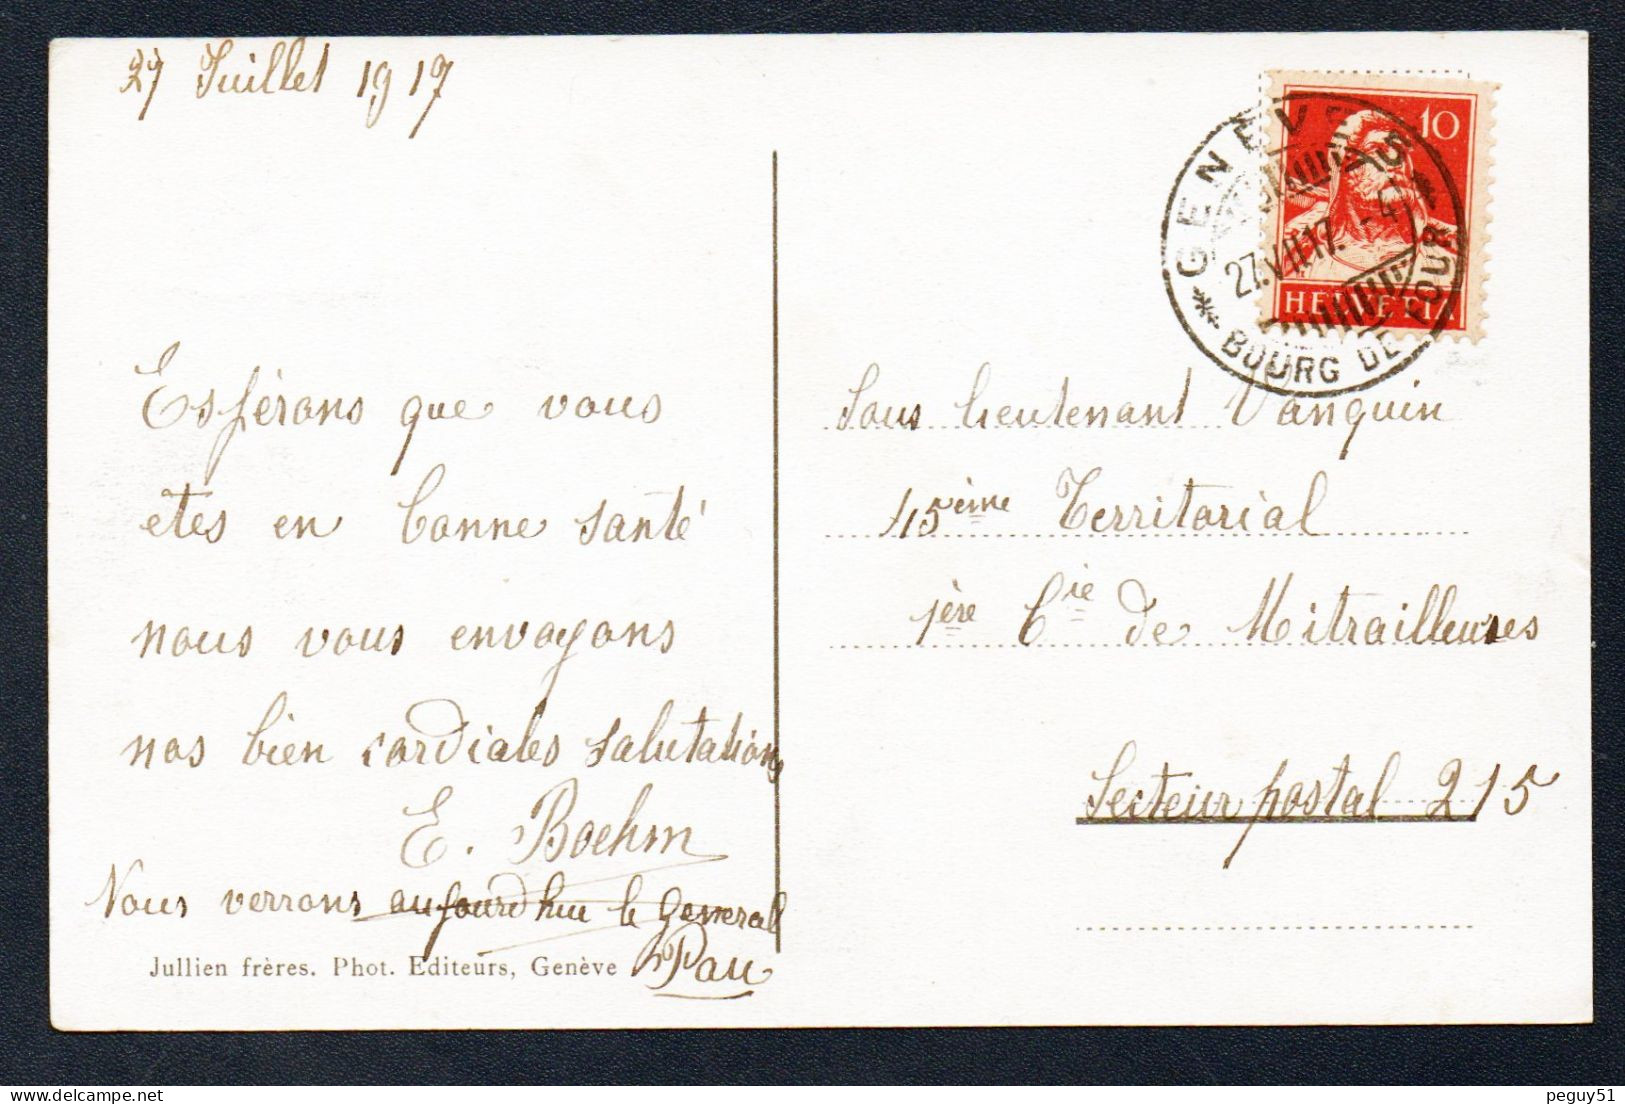 27 Juillet 1917
Espérons que vous
etes en bonne santé
nous vous envoyons
nos bien cordiales salutations
E. Boehm
Nous verrons aujourd hui le General
Pau
Jullien frères. Phot. Editeurs, Genève
10
HELVETIA
* GENÈVE 5 *
27.VII.17.
BOURG DE FOUR
Sous lieutenant Vanquin
45ème Territorial
1ère Cie de Mitrailleuses
Secteur postal 215
peguy51